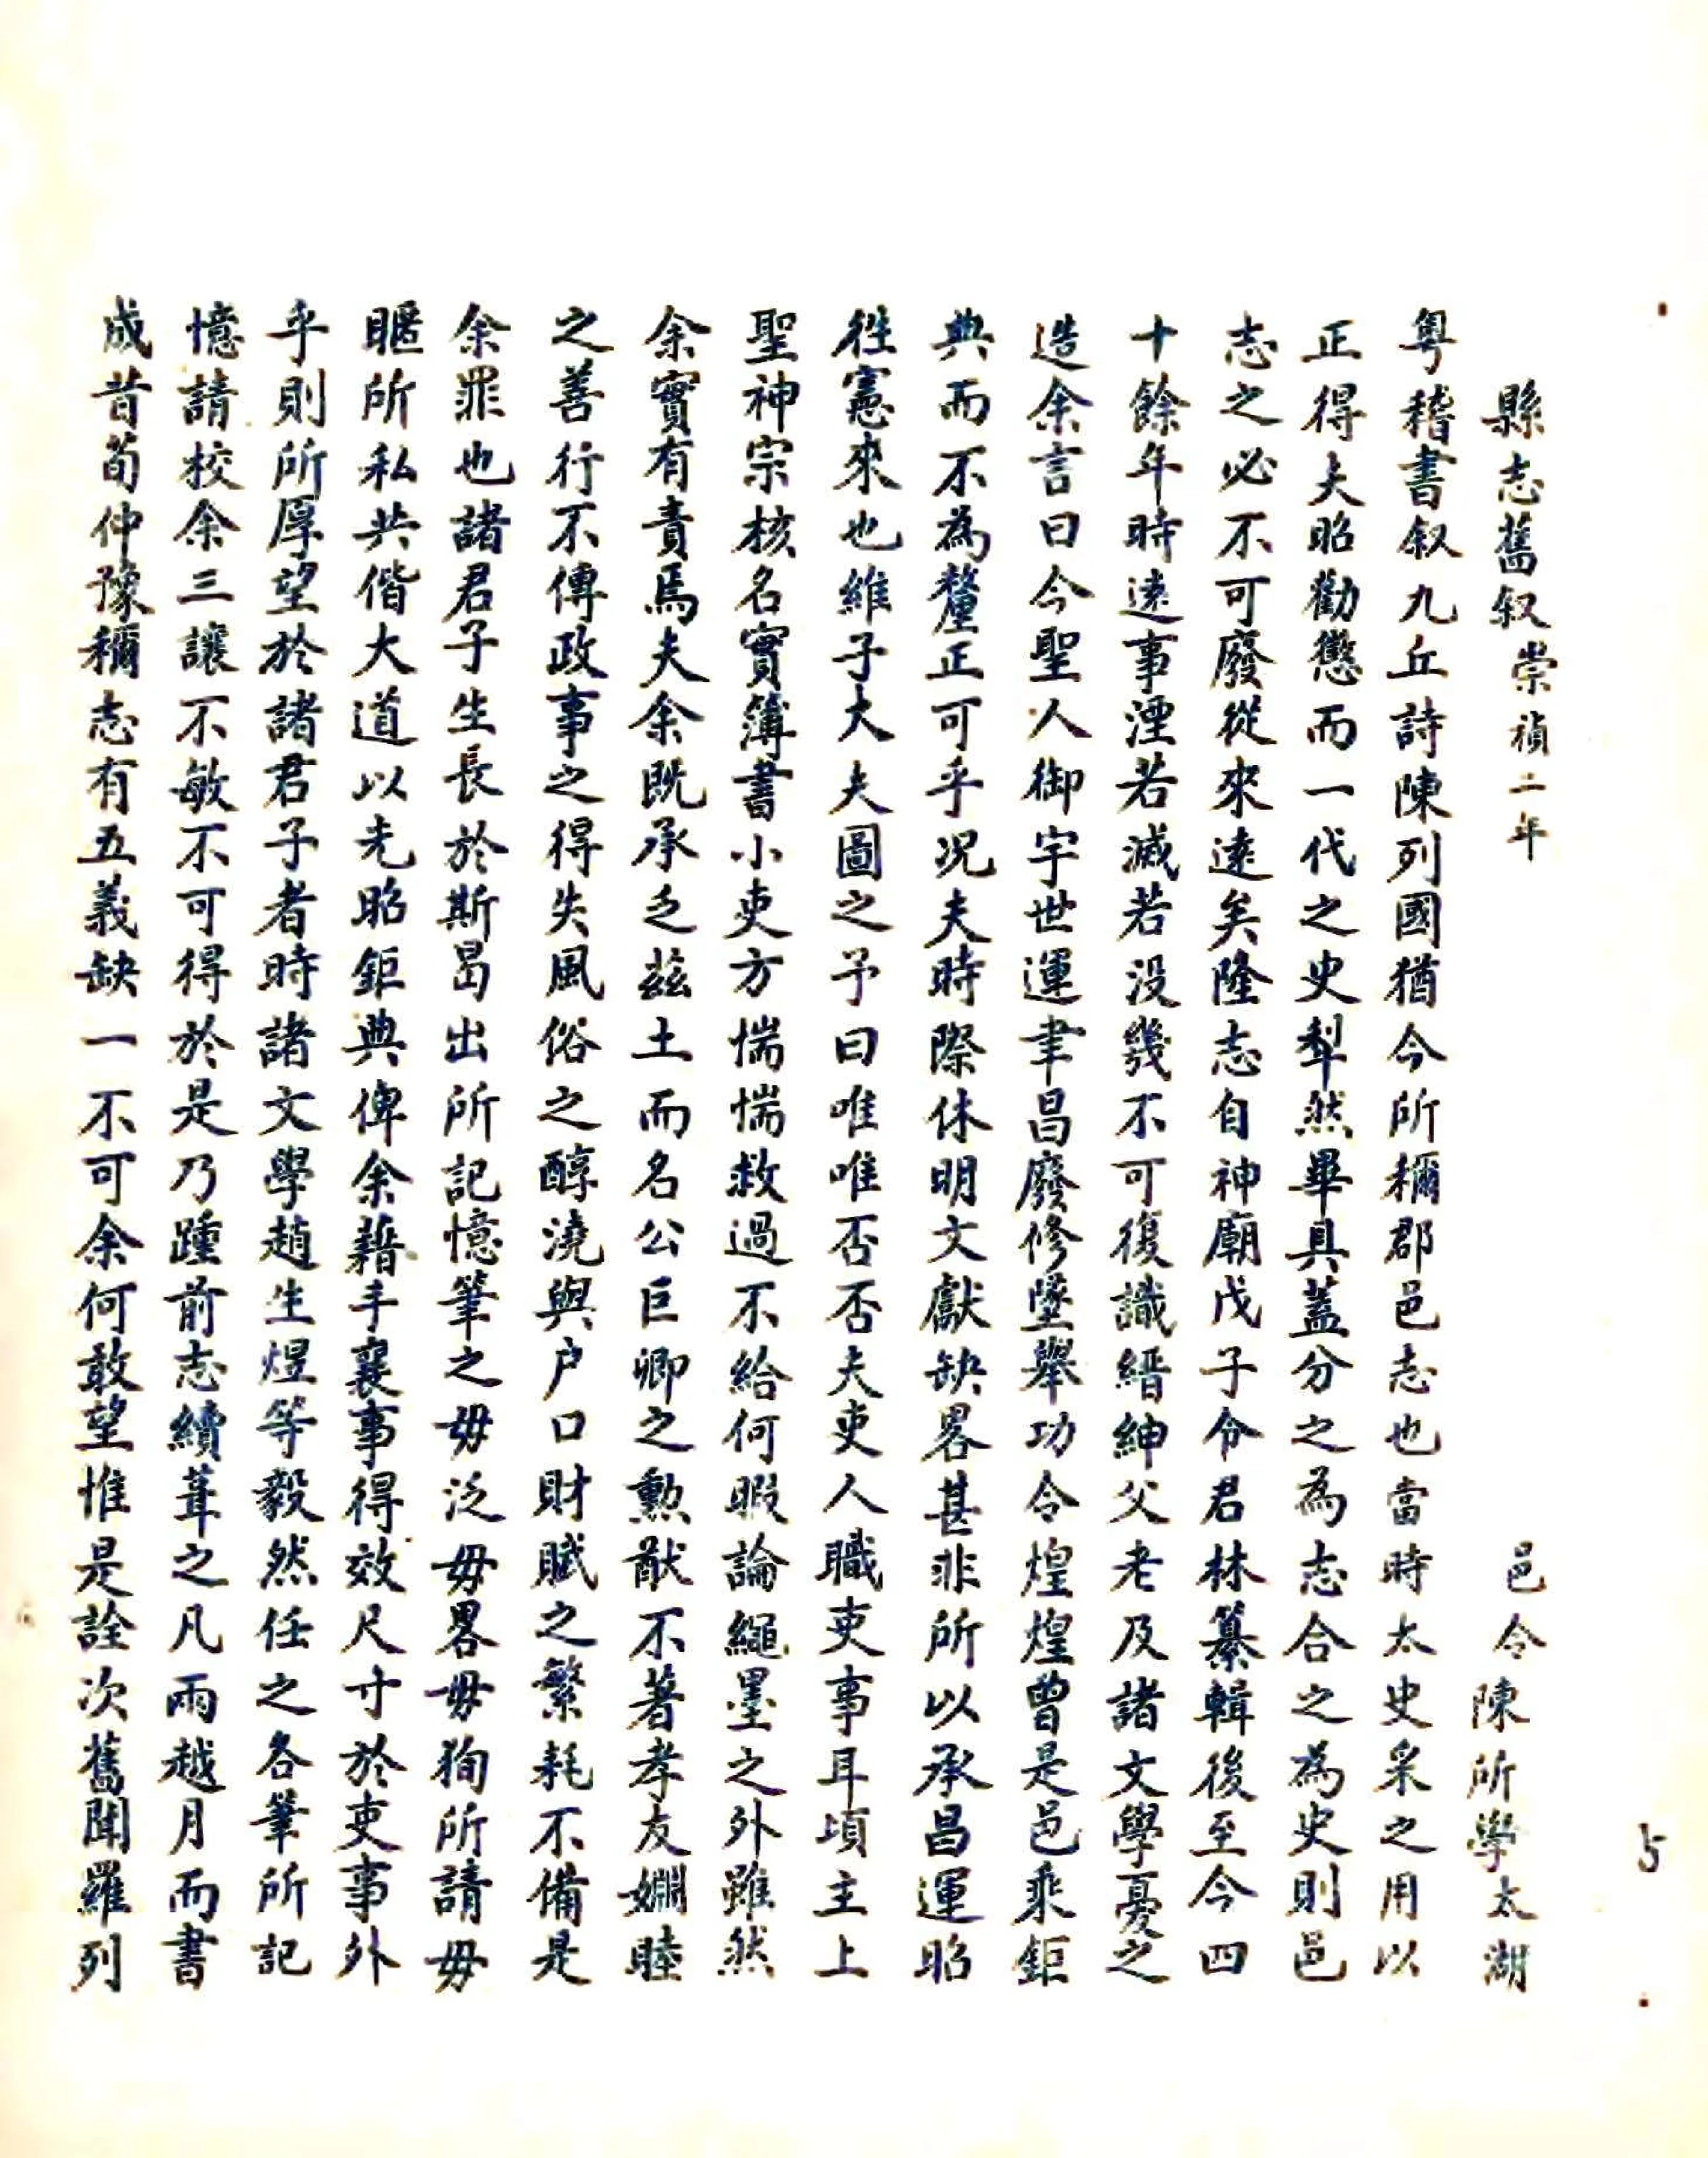 縣志舊叙崇禎二年 邑令陳所學太湖
粤稽書叙九丘詩陳列國猶今所稱郡邑志也當時太史采之用以
正得夫昭勸懲而一代之史犁然畢具蓋分之為志合之為史則邑
志之必不可廢從來遠矣隆志自神廟戊子令君林纂輯後至今四
十餘年時遠事湮若滅若没幾不可復識縉紳父老及諸文學憂之
造余言曰今聖人御宇世運聿昌廢修墜舉功令煌煌曾是邑乘鉅
典而不為釐正可乎况夫時際休明文獻缺畧甚非所以承昌運昭
徃憲來也維子大夫圖之予曰唯唯否否夫吏人職吏事耳頃主上
聖神宗核名實簿書小吏方惴惴救過不給何暇論繩墨之外雖然
余實有責焉夫余既承乏兹土而名公巨卿之勲猷不著孝友婣睦
之善行不傳政事之得失風俗之醇澆與户口財賦之繁耗不備是
余罪也諸君子生長於斯曷出所記憶筆之毋泛毋畧毋狥所請毋
暱所私共偕大道以光昭鉅典俾余藉手襄事得效尺寸於吏事外
乎則所厚望於諸君子者時諸文學趙生煜等毅然任之各筆所記
憶請校余三讓不敏不可得於是乃踵前志續葺之凡兩越月而書
成昔荀仲豫稱志有五義缺一不可余何敢望惟是詮次舊聞羅列
5